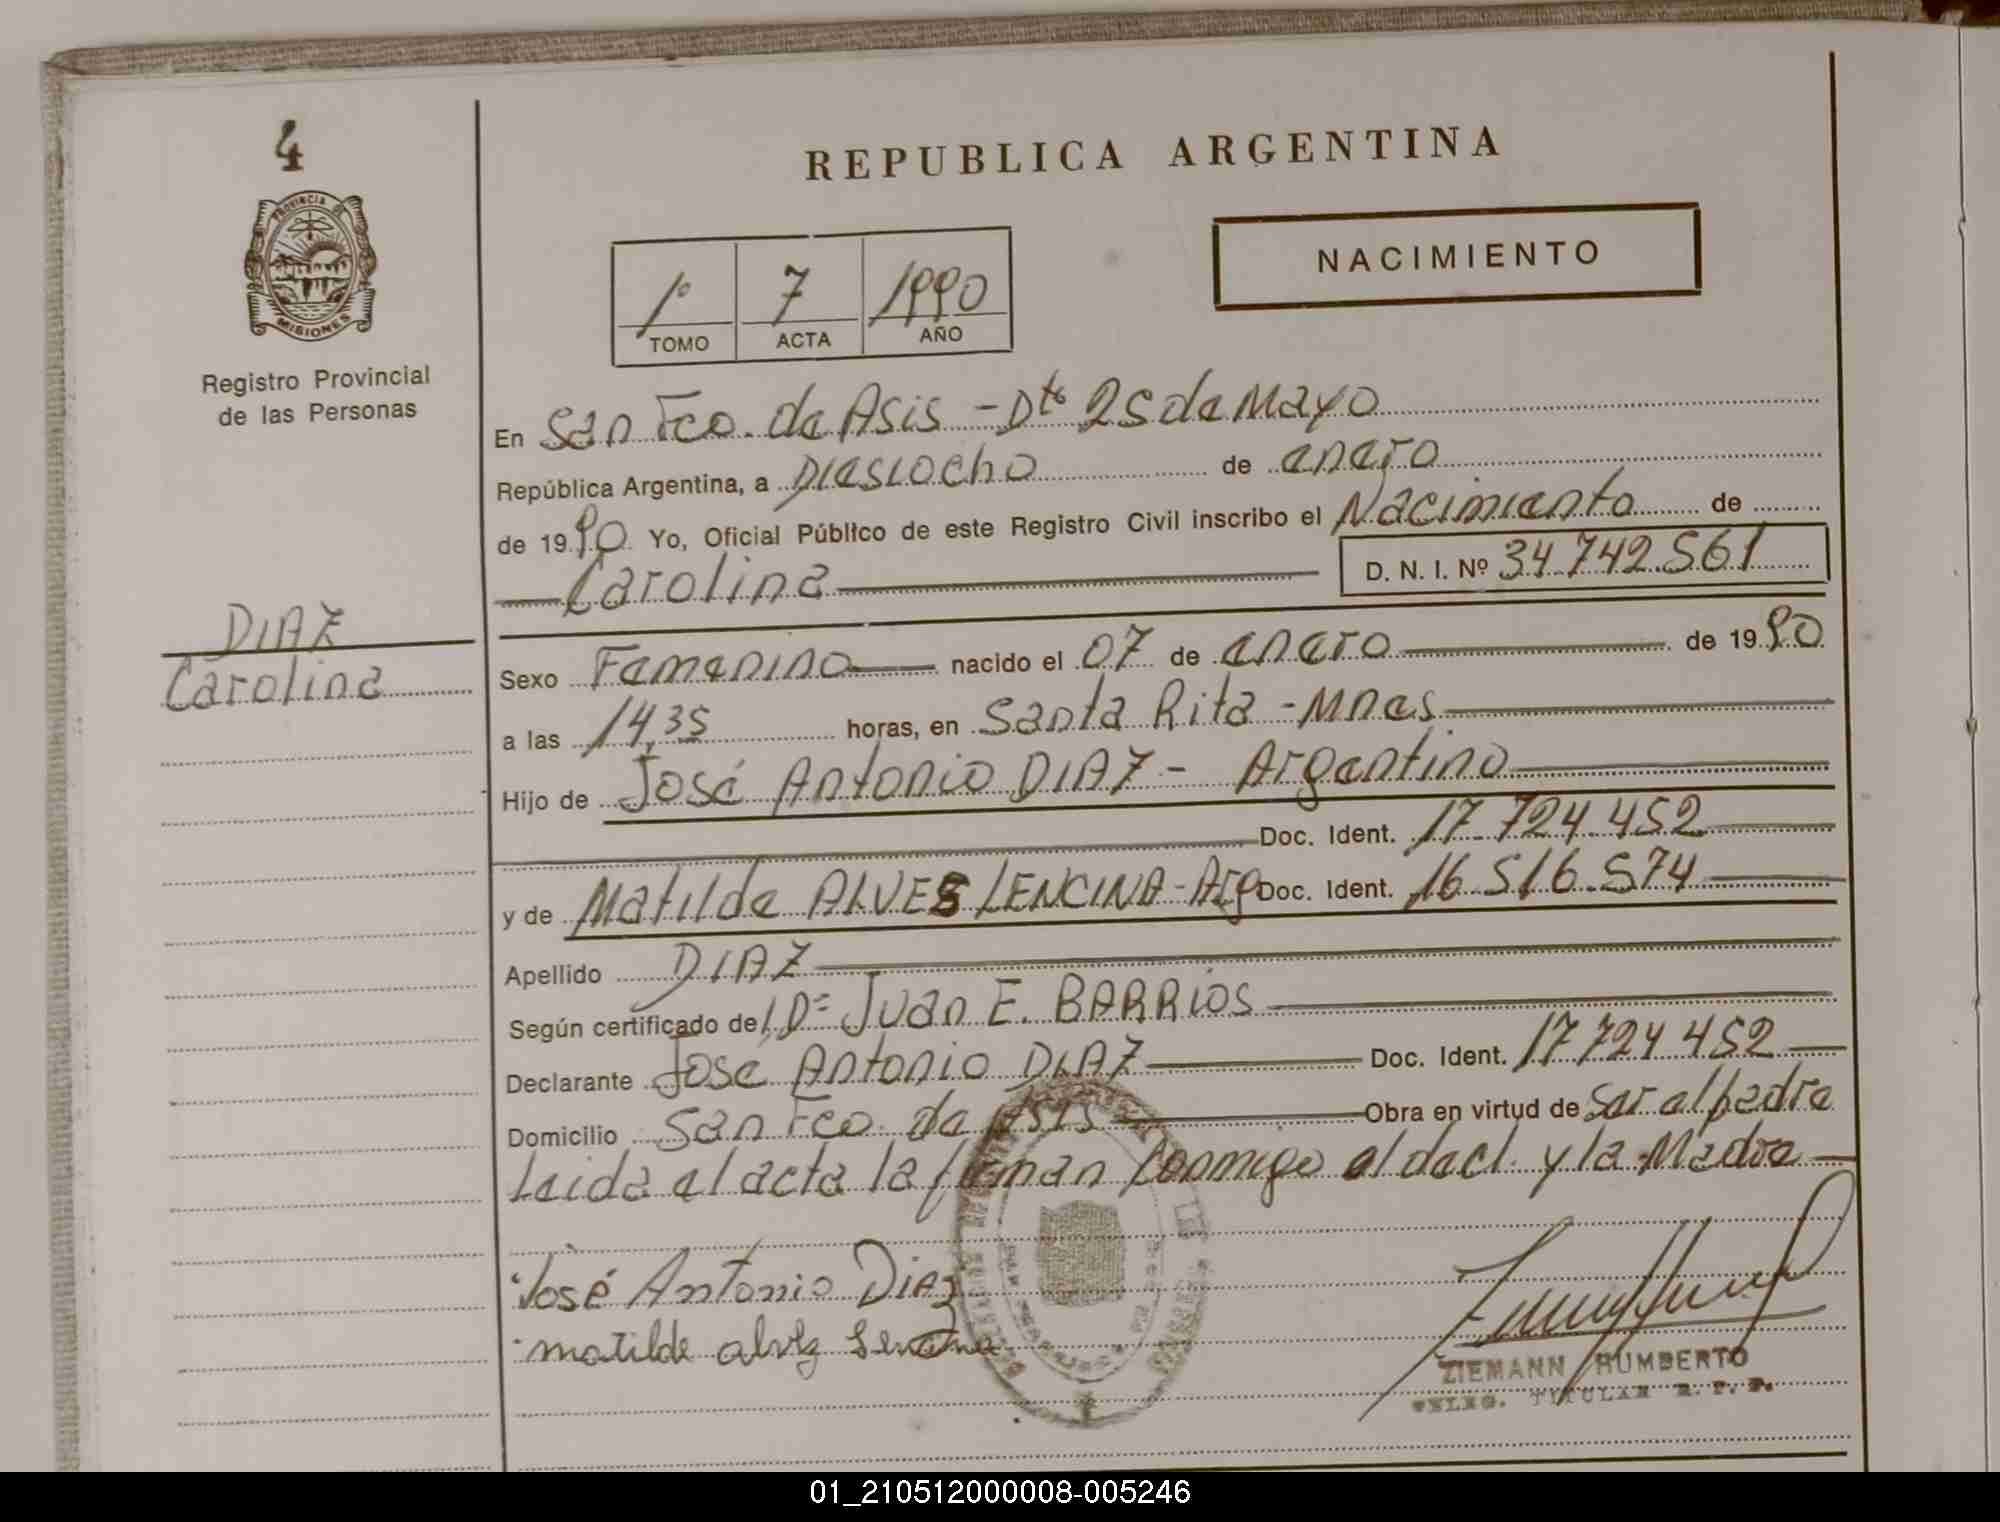 4
REPUBLICA ARGENTINA
PROVINCIA DE
MISIONES
NACIMIENTO
1º 7 1990
TOMO ACTA AÑO
Registro Provincial
de las Personas
En San Fco. de Asis - Dto 25 de Mayo
República Argentina, a Diesiocho de enero
de 1990 Yo, Oficial Público de este Registro Civil inscribo el Nacimiento de
Carolina D. N. I. Nº 34.742.561
DIAZ
Carolina
Sexo Femenino nacido el 07 de enero de 1990
a las 14,35 horas, en Santa Rita - Mnes
Hijo de José Antonio DIAZ - Argentino
Doc. Ident. 17.724.452
y de Matilde ALVES LENCINA - Arg Doc. Ident. 16.516.574
Apellido DIAZ
Según certificado del, D= Juan E. BARRIOS
Declarante Jose Antonio DIAZ Doc. Ident. 17724452
Domicilio San Fco. de Asis Obra en virtud de Ser el padre
Leida el acta la firman conmigo el decl. y la Madre
José Antonio Diaz
matilde alvez Lencina
ZIEMANN HUMBERTO
DELEG. TITULAR R. P. P.
01_210512000008-005246